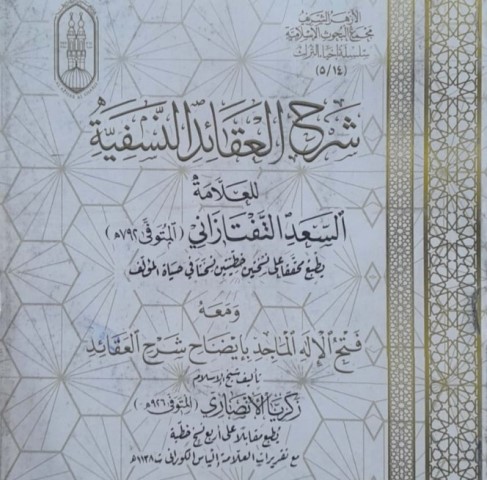 الأزهر الشريف
مجمع البحوث الإسلامية
سلسلة إحياء التراث
(٥/١٤)
شرح العقائد النسفية
للعلامة
السعد التفتازاني (المتوفى ٧٩٢هـ)
يطبع محققا على نسختين خطيتين نسختا في حياة المؤلف
ومعه
فتح الإله الماجد بإيضاح شرح العقائد
تأليف شيخ الإسلام
زكريا الأنصاري (المتوفى ٩٢٦هـ)
يطبع مقابلا على أربع نسخ خطية
مع تقريرات العلامة إلياس الكوراني ت ١١٣٨هـ